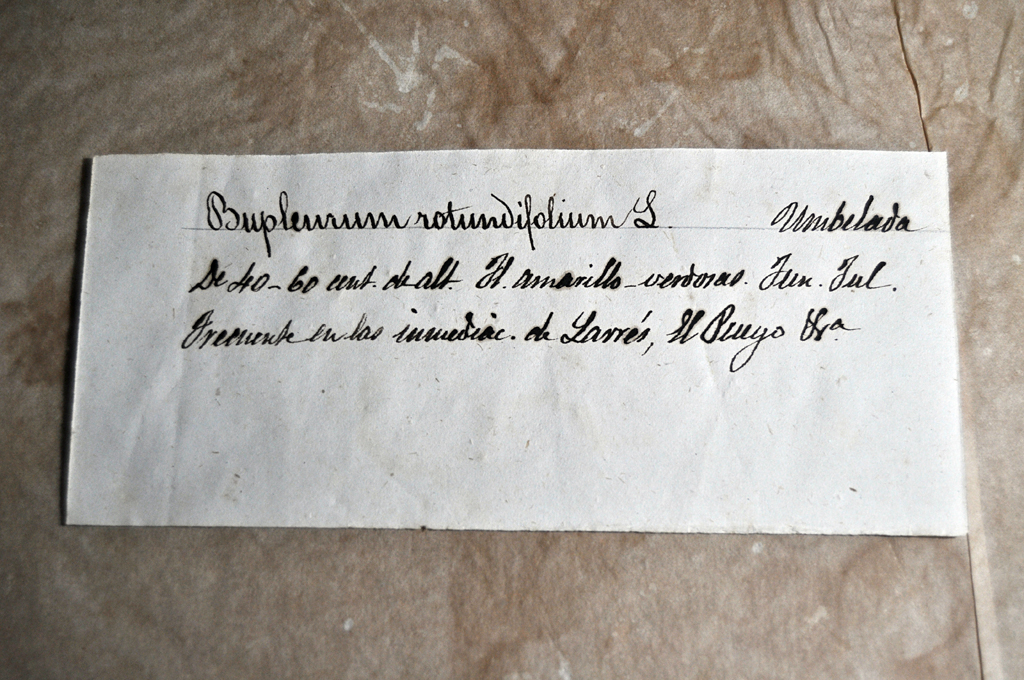 Bupleurum rotundifolium L. Umbelada
De 40-60 cent. de alt. Fl. amarillo-verdosas. Jun. Jul.
Frecuente en las inmediac. de Larrés, El Pueyo &ra